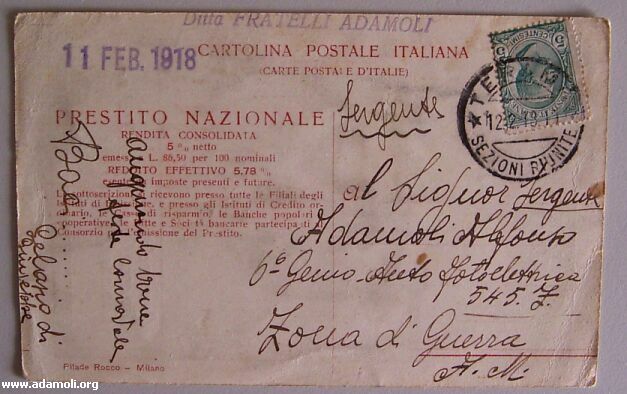 Ditta FRATELLI ADAMOLI
11 FEB. 1918
CARTOLINA POSTALE ITALIANA
(CARTE POSTALE D'ITALIE)
PRESTITO NAZIONALE
RENDITA CONSOLIDATA
5 % netto
emesso a L. 86,50 per 100 nominali
REDDITO EFFETTIVO 5.78 %
esente da imposte presenti e future.
Le sottoscrizioni si ricevono presso tutte le Filiali degli
Istituti di e presso gli Istituti di Credito
le Casse di risparmio le Banche popolari
cooperative, le Ditte e Società bancarie partecipanti al
Consorzio per l'emissione del Prestito.
Sergente
CENTESIMI
SEZIONI RIUNITE
al Signor Sergente
Adamoli Alfonso
6° Genio Auto fotoelettrica
545. F.
Zona di Guerra
Baci
Pilade Rocco - Milano
www.adamoli.org